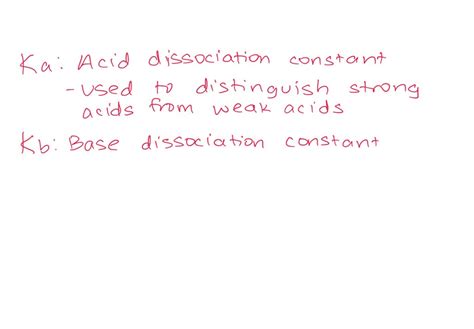 Ka: Acid dissociation constant
- used to distinguish strong
acids from weak acids
Kb: Base dissociation constant